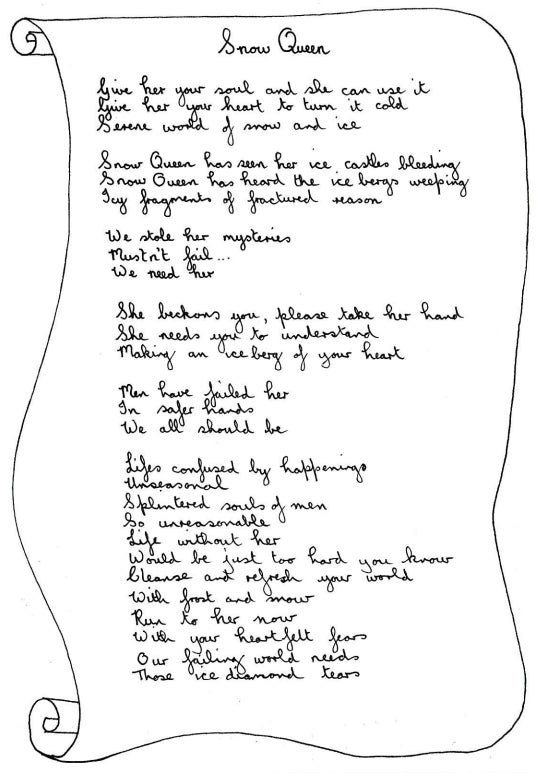 Snow Queen
Give her your soul and she can use it
Give her your heart to turn it cold
Serene world of snow and ice
Snow Queen has seen her ice castles bleeding
Snow Queen has heard the ice bergs weeping
Icy fragments of fractured reason
We stole her mysteries
Mustn't fail...
We need her
She beckons you, please take her hand
She needs you to understand
Making an ice berg of your heart
Men have failed her
In safer hands
We all should be
Lifes confused by happenings
Unseasonal
Splintered souls of men
So unreasonable
Life without her
Would be just too hard you know
Cleanse and refresh your world
With frost and snow
Run to her now
With your heartfelt fears
Our failing world needs
Those ice diamond tears